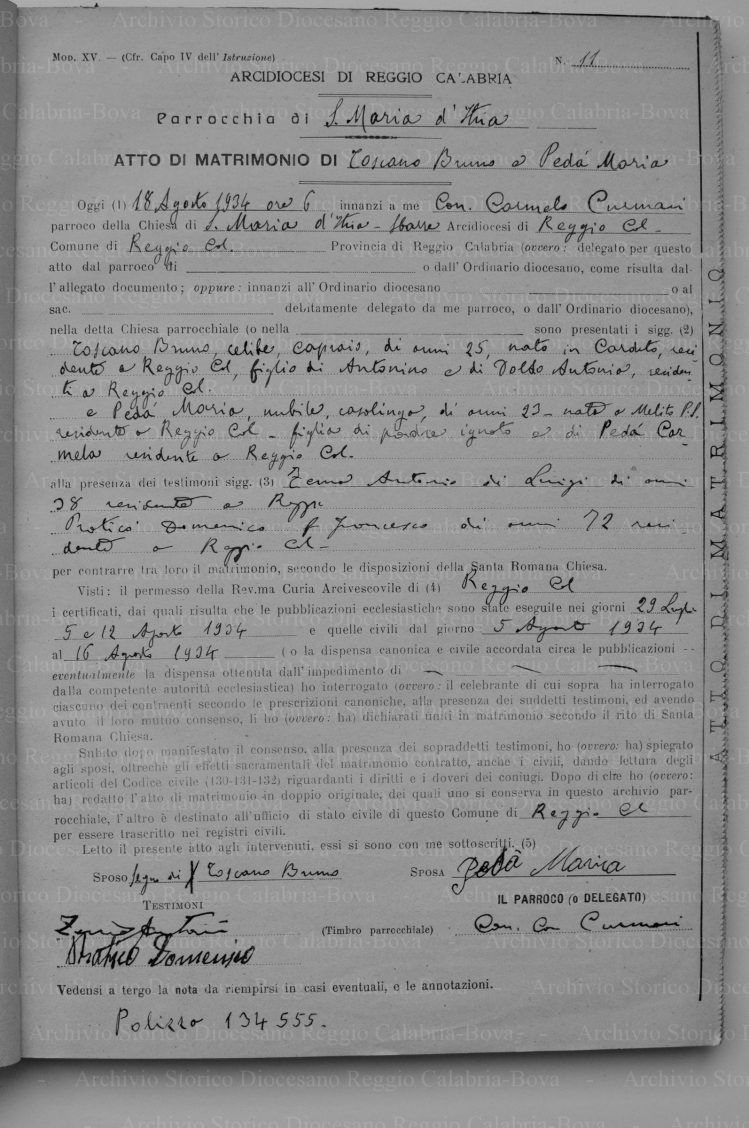 Mod. XV. — (Cfr. Capo IV dell' Istruzione) N. 11
ARCIDIOCESI DI REGGIO CALABRIA
Parrocchia di S. Maria d'Itria
ATTO DI MATRIMONIO DI Toscano Bruno e Pedà Maria
Oggi (1) 18 Agosto 1934 ore 6 innanzi a me Con. Carmelo Curmaci
parroco della Chiesa di S. Maria d'Itria - Sbarre Arcidiocesi di Reggio Cal.
Comune di Reggio Cal. Provincia di Reggio Calabria (ovvero: delegato per questo
atto dal parroco di o dall' Ordinario diocesano, come risulta dal-
l'allegato documento; oppure: innanzi all' Ordinario diocesano o al
sac. debitamente delegato da me parroco, o dall' Ordinario diocesano),
nella detta Chiesa parrocchiale (o nella sono presentati i sigg. (2)
Toscano Bruno, celibe, di anni 25, nato in Cardeto, resi
dente a Reggio Cal, figlio di Antonino e di Antonia, residen
ti a Reggio Cal.
e Pedà Maria, nubile, casalinga, di anni 23 - nata a Melito P.S.
residente a Reggio Cal - figlia di padre ignoto e di Pedà Car
mela residente a Reggio Cal.
alla presenza dei testimoni sigg. (3) Antonio di Luigi di anni
38 residente a Reggio
Domenico fu Francesco di anni 72 resi
dente a Reggio Cal -
per contrarre tra loro il matrimonio, secondo le disposizioni della Santa Romana Chiesa.
Visti: il permesso della Rev.ma Curia Arcivescovile di (4) Reggio Cal
i certificati, dai quali risulta che le pubblicazioni ecclesiastiche sono state eseguite nei giorni 29 Luglio
5 e 12 Agosto 1934 e quelle civili dal giorno 5 Agosto 1934
al 16 Agosto 1934 (o la dispensa canonica e civile accordata circa le pubblicazioni --
eventualmente la dispensa ottenuta dall'impedimento di
dalla competente autorità ecclesiastica) ho interrogato (ovvero: il celebrante di cui sopra ha interrogato
ciascuno dei contraenti secondo le prescrizioni canoniche, alla presenza dei suddetti testimoni, ed avendo
avuto il loro mutuo consenso, li ho (ovvero: ha) dichiarati uniti in matrimonio secondo il rito di Santa
Romana Chiesa.
Subito dopo manifestato il consenso, alla presenza dei sopraddetti testimoni, ho (ovvero: ha) spiegato
agli sposi, oltreché gli effetti sacramentali del matrimonio contratto, anche i civili, dando lettura degli
articoli del Codice civile (130-131-132) riguardanti i diritti e i doveri dei coniugi. Dopo di che ho (ovvero:
ha) redatto l'atto di matrimonio in doppio originale, dei quali uno si conserva in questo archivio par-
rocchiale, l'altro è destinato all'ufficio di stato civile di questo Comune di Reggio Cal
per essere trascritto nei registri civili.
Letto il presente atto agli intervenuti, essi si sono con me sottoscritti. (5)
SPOSO segno di X Toscano Bruno SPOSA Pedà Maria
TESTIMONI IL PARROCO (o DELEGATO)
Antonio (Timbro parrocchiale) Con. Car Curmaci
Domenico
Vedensi a tergo la nota da riempirsi in casi eventuali, e le annotazioni.
Polizza 134555.
ATTO DI MATRIMONIO
Archivio Storico Diocesano Reggio Calabria-Bova